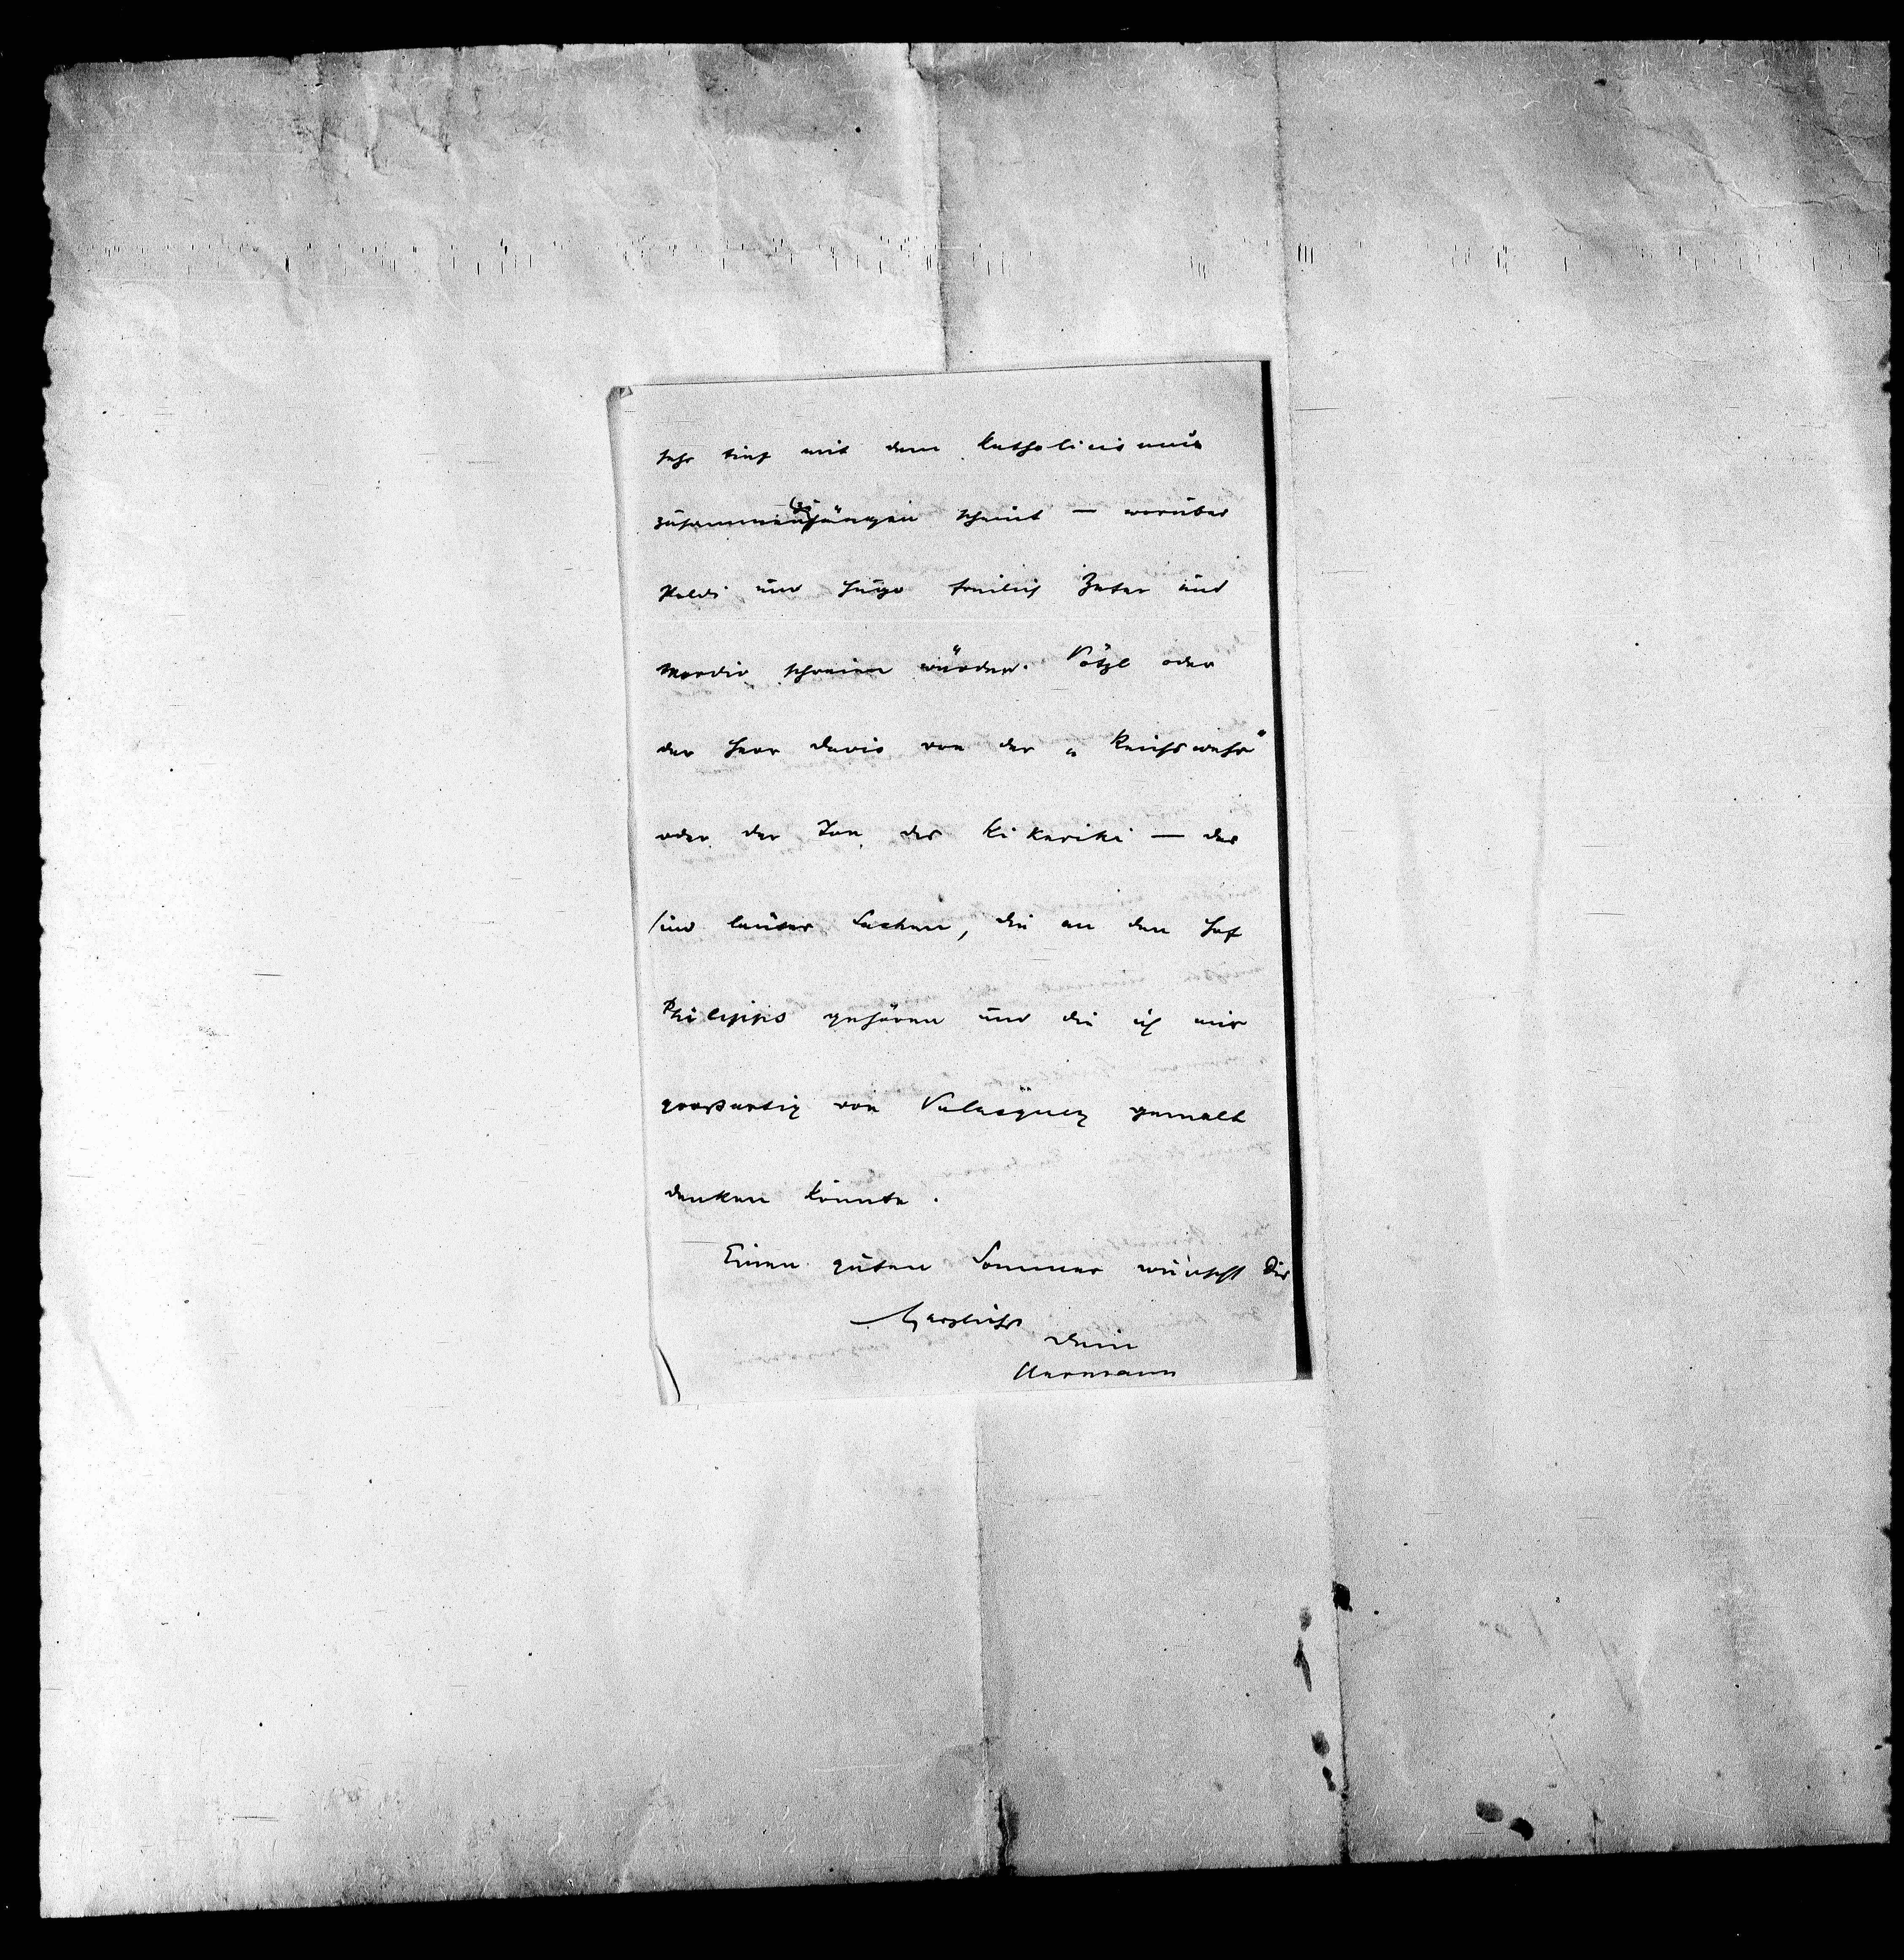 sehr tief mit dem Katholicismus
zusammenzuhängen scheint — worüber
Poldi und Hugo freilich Zeter und
Mordio schreien würden. Pötzl oder
der Herr David von der „Reichswehr“
oder der Ton des Kikeriki — das
sind lauter Sachen, die an den Hof
Philipps gehören und die ich mir
großartig von Velasquez gemalt
denken könnte.
Einen guten Sommer wünscht Dir
herzlichst
Dein
Hermann